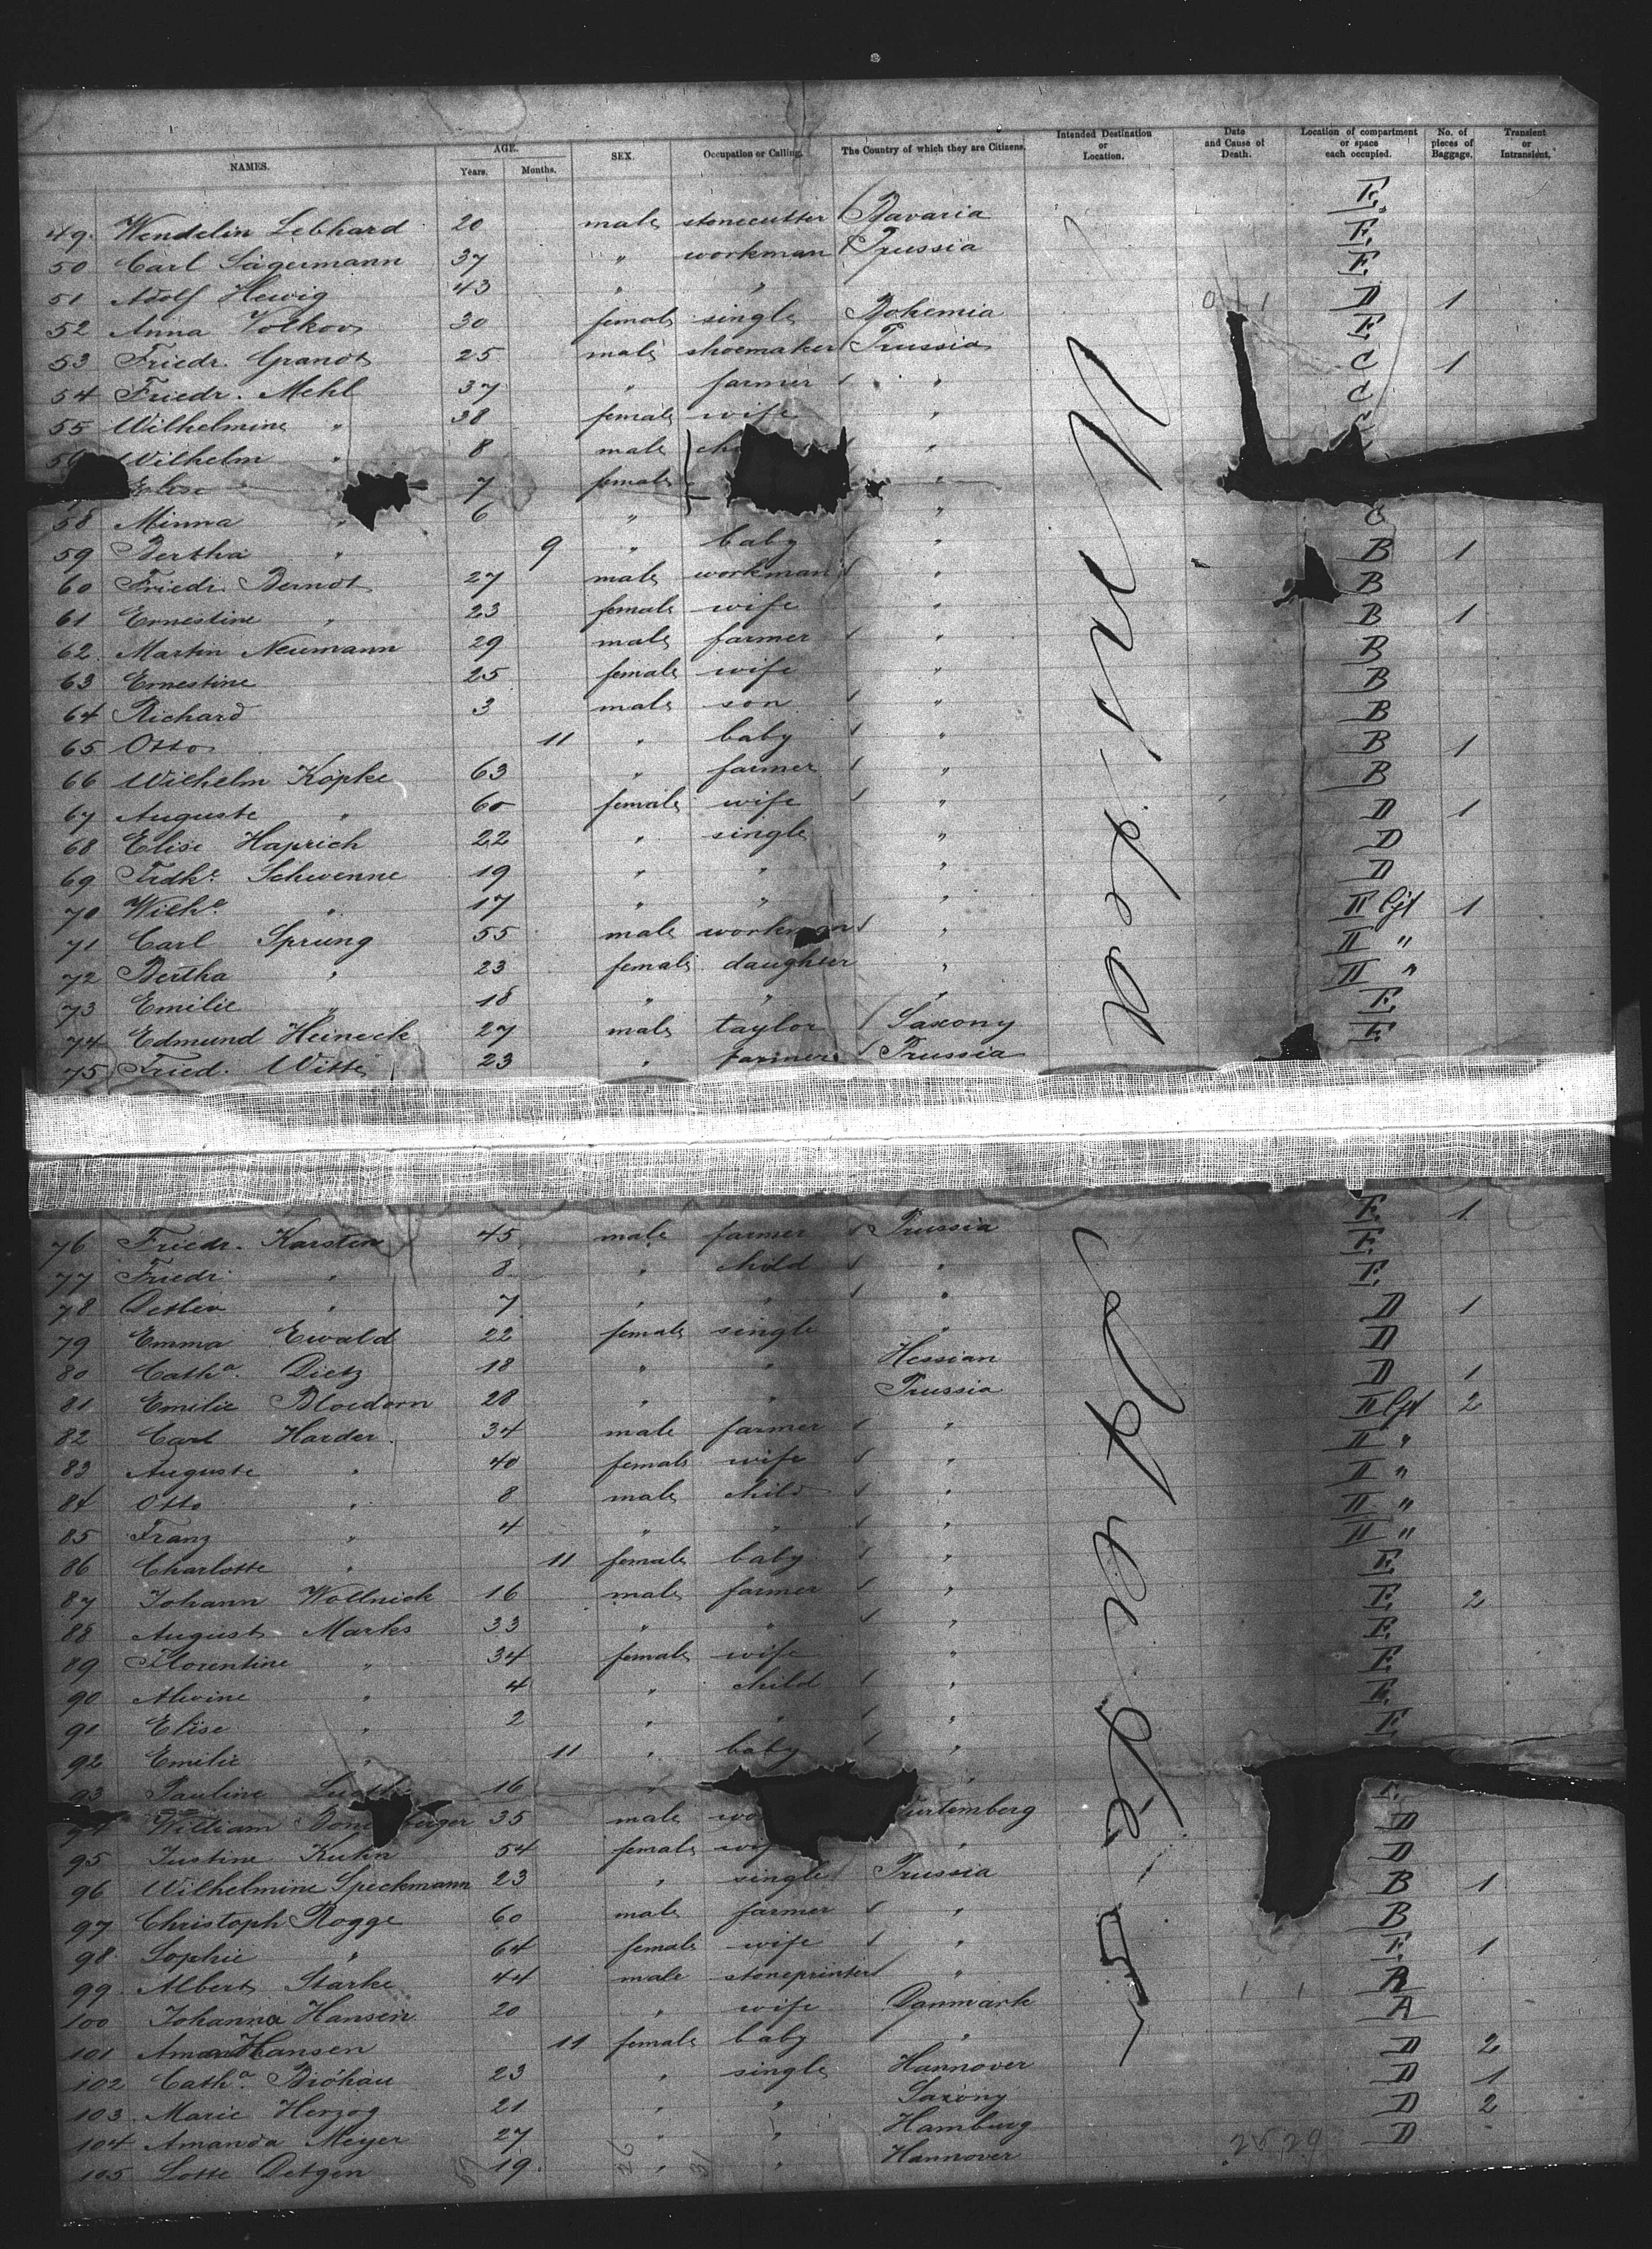 NAMES. AGE. Years. Months. SEX. Occupation or Calling. The Country of which they are Citizens. Intended Destination or Location. Date and Cause of Death. Location of compartment or space each occupied. No. of pieces of Baggage. Transient or Intransient.
49. Wendelin Lebhard 20 male stonecutter Bavaria E.
50 Carl Sägermann 37 " workman Prussia E.
51 Adolf Hewig 43 " " E.
52 Anna Volkov 30 female single Bohemia D 1
53 Friedr. Grandt 25 male shoemaker Prussia E.
54 Friedr. Mehl 37 " farmer " C 1
55 Wilhelmine " 38 female wife " C
56 Wilhelm " 8 male "
Elise 7 female "
58 Minna " 6 " "
59 Bertha " 9 " baby " C
60 Friedr. Berndt 27 male workman " B 1
61 Ernestine " 23 female wife " B
62. Martin Neumann 29 male farmer " B 1
63 Ernestine 25 female wife " B
64 Richard 3 male son " B
65 Otto 11 " baby " B
66 Wilhelm Köpke 63 " farmer " B 1
67 Auguste " 60 female wife " B
68 Elise Haprich 22 " single " D 1
69 Fridke. Schwenne 19 " " " D
70 Wilhe. " 17 " " " D
71 Carl Sprung 55 male workman " II Cjt 1
72 Bertha " 23 female daughter " II "
73 Emilie " 18 " " " II "
74 Edmund Heineck 27 male taylor Saxony E.
75 Fried. Witte 23 " farmer Prussia E.
76 Friedr. Karsten 45 male farmer Prussia E. 1
77 Friedr. " 8 " child " E.
78 Detlev " 7 " " " E.
79 Emma Ewald 22 female single " D 1
80 Catha. Dietz 18 " " Hessian D
81 Emilie Bloedorn 28 " " Prussia D 1
82 Carl Harder 34 male farmer " II Cjt 2
83 Auguste " 40 female wife " II "
84 Otto " 8 male child " II "
85 Franz " 4 " " " II "
86 Charlotte " 11 female baby " II "
87 Johann Wollnick 16 male farmer " E.
88 August Marks 33 " " " E. 2
89 Florentine " 34 female wife " E.
90 Alwine " 4 " child " E.
91 Elise " 2 " " " E.
92 Emilie " 11 " baby " E.
93 Pauline 16 " "
William 35 male E.
95 Justine Kuhn 54 female " D
96 Wilhelmine Speckmann 23 " single Prussia D
97 Christoph Rogge 60 male farmer " B 1
98. Sophie " 64 female wife " B
99. Albert Starke 44 male stoneprinter " E. 1
100 Johanna Hansen 20 " wife Danmark A
101 Hansen 11 female baby " A
102 Catha. Bröhau 23 " single Hannover D 2
103. Marie Herzog 21 " " Saxony D 1
104 Amanda Meyer 27 " " Hamburg D 2
105 Lotte Detgen 19. " " Hannover D